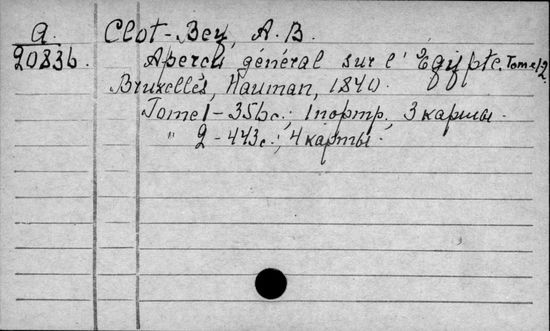 A. Clot-Bey, A.B.
20836. Aperçu général sur l'Égypte. Tome 1, 2
Bruxelles, Hauman, 1840.
Tome 1 - 356 с.; 1 портр., 3 карты.
" 2 - 443 с.; 4 карты.